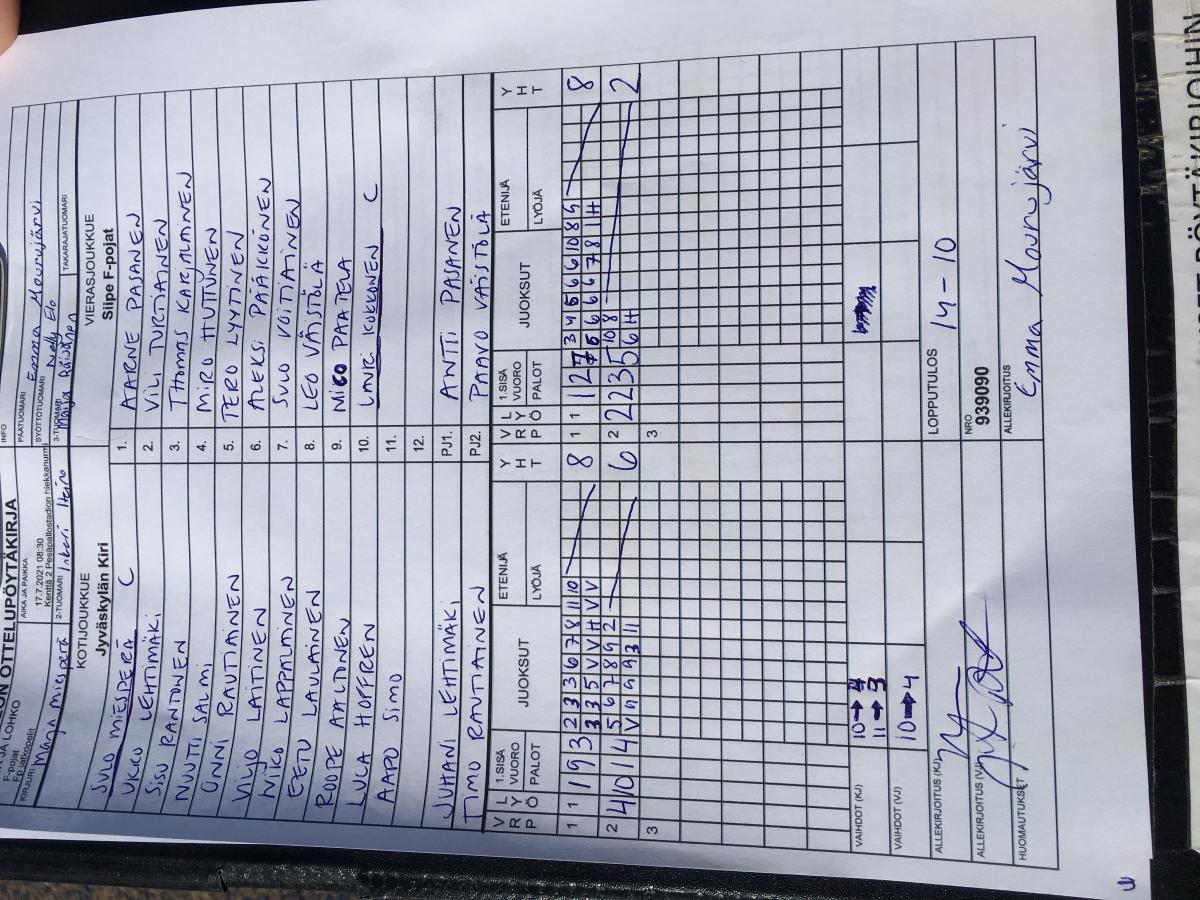 OTTELUPÖYTÄKIRJA
INFO
JA LOHKO
F-pojat
Fp jatkopelit
AIKA JA PAIKKA
17.7.2021 08:30
Kenttä 2 Pesäpallostadion hiekkanurmi
PÄÄTUOMARI
Emma Mourujärvi
KIRJURI
Maija Miesperä
2-TUOMARI
Inkeri Iteino
SYÖTTÖTUOMARI
Nelly Elo
3-TUOMARI
Maija Räisänen
TAKARAJATUOMARI
KOTIJOUKKUE
Jyväskylän Kiri
VIERASJOUKKUE
Siipe F-pojat
SULO MIESPERÄ C
1. AARNE PASANEN
UKKO LEHTIMÄKI
2. VILI TURTIAINEN
SISU RANTONEN
3. THOMAS KARJALAINEN
NUUTTI SALMI
4. MIRO HUTTUNEN
ONNI RAUTIAINEN
5. TERO LYYTINEN
VILJO LAITINEN
6. ALEKSI PÄÄKKÖNEN
NIILO LAPPALAINEN
7. SULO VOITIAINEN
EETU LAULAINEN
8. LEO VÄISTÖLÄ
ROOPE AALTONEN
9. NICO PAATELA
LUCA HOFFREN
10. LAURI KOKKONEN C
AAPO SIMO
11.
12.
JUHANI LEHTIMÄKI
PJ1. ANTTI PASANEN
TIMO RAUTIAINEN
PJ2. PAAVO VÄISTÖLÄ
V R P L Y Ö 1.SISÄ VUORO PALOT JUOKSUT ETENIJÄ LYÖJÄ Y H T
V R P L Y Ö 1.SISÄ VUORO PALOT JUOKSUT ETENIJÄ LYÖJÄ Y H T
1 1 1 9 3 2 3 3 6 7 8 11 10 8
3 3 5 V V H V V
1 1 1 2 7 3 4 5 6 6 10 8 9 8
5 6 6 6 7 8 1 H
2 4 10 1 4 5 6 7 8 9 2 6
V 9 9 9 3 11
2 2 2 3 5 10 8 2
6 H
3
3
VAIHDOT (KJ) 10→4
11→3
VAIHDOT (VJ) 10→4
ALLEKIRJOITUS (KJ)
LOPPUTULOS 14-10
ALLEKIRJOITUS (VJ)
NRO
939090
HUOMAUTUKSET
ALLEKIRJOITUS
Emma Mourujärvi